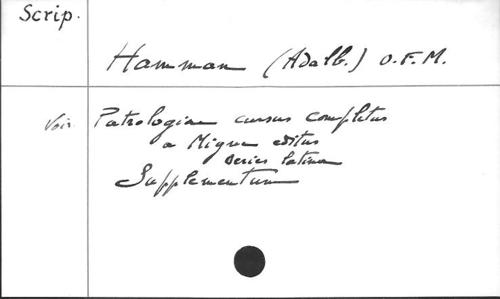 Scrip.
Hamman (Adalb.) O.F.M.
Voir Patrologiae cursus completus
a Migne editus
series latina
Supplementum